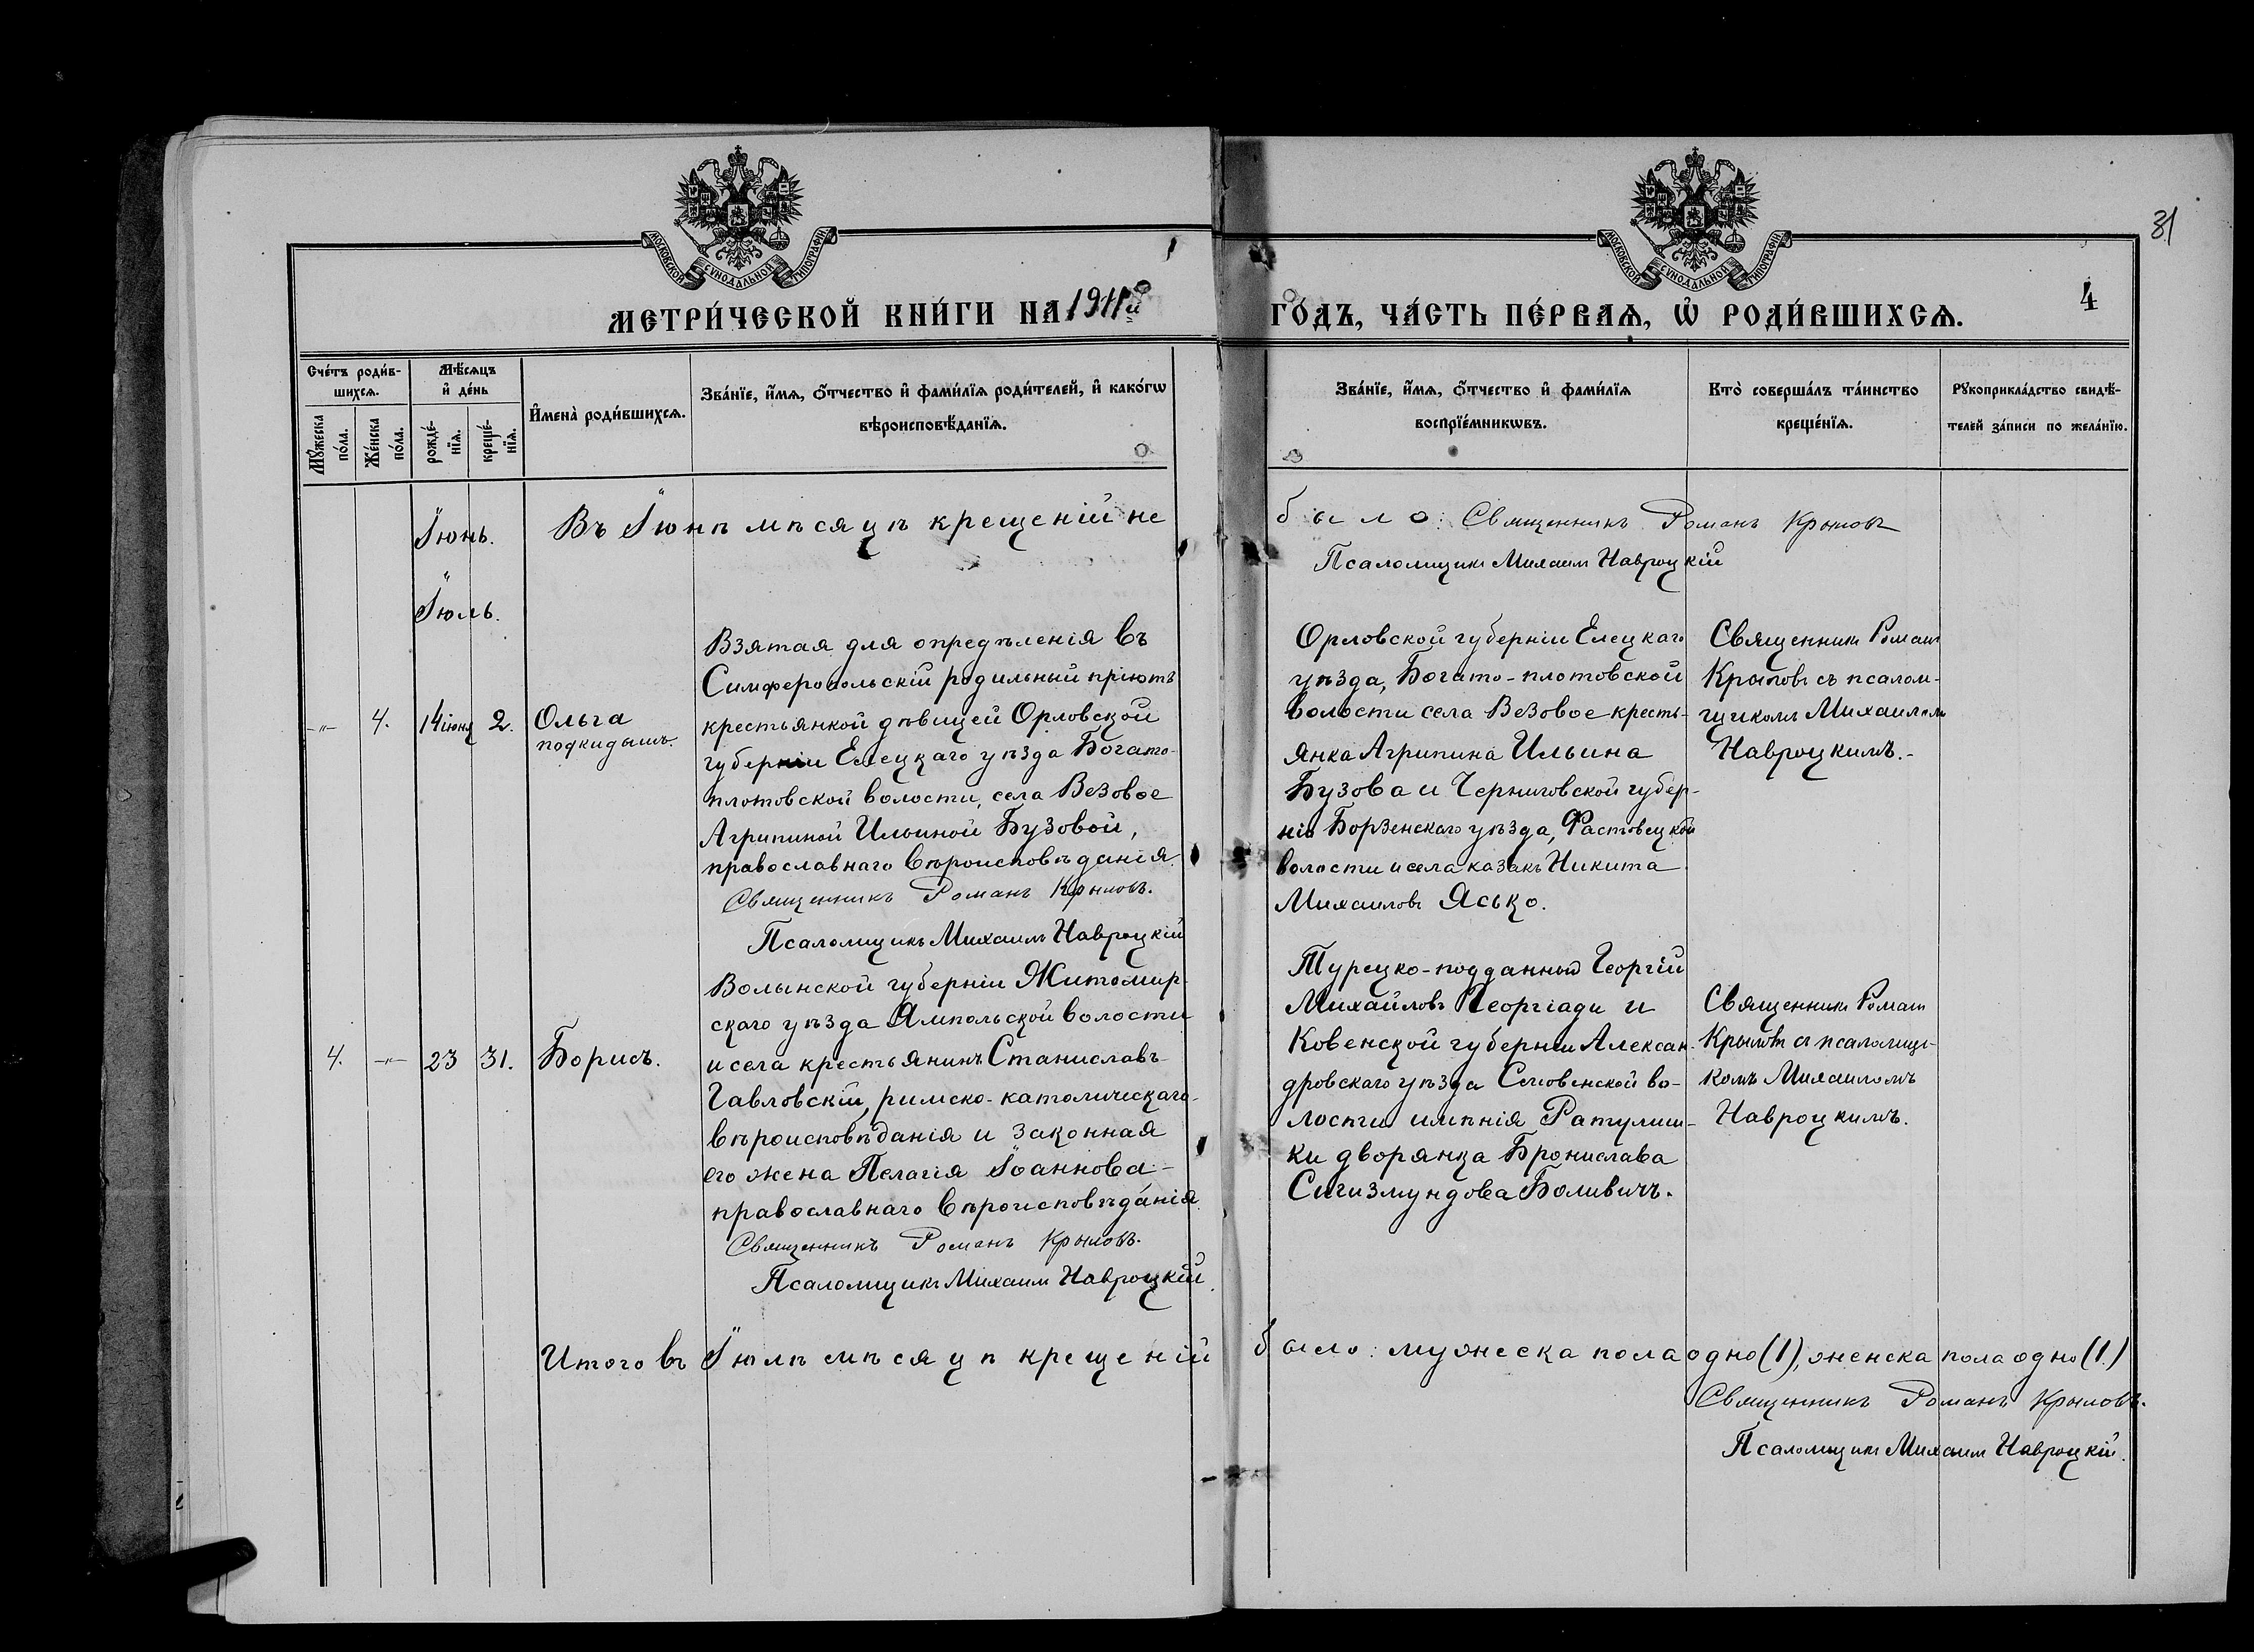 МОСКОВСКОЙ СѴНОДАЛЬНОЙ ТИПОГРАФІИ
МОСКОВСКОЙ СѴНОДАЛЬНОЙ ТИПОГРАФІИ
31
4
МЕТРИ́ЧЕСКОЙ КНИ́ГИ НА 1911й
ГО́ДЪ, ЧА́СТЬ ПЕ́РВАѦ, Ѡ҆ РОДИ́ВШИХСѦ.
Сче́тъ роди́в-
шихсѧ.
Мꙋ́жеска по́ла.
Же́нска по́ла.
Мѣ́сѧцъ
и҆ де́нь
рожде́-нїѧ.
креще́-нїѧ.
И҆мена̀ роди́вшихсѧ.
Зва́нїе, и҆́мѧ, ѻ҆́тчество и҆ фами́лїѧ роди́телей, и҆ како́гѡ
вѣроисповѣ́данїѧ.
Зва́нїе, и҆́мѧ, ѻ҆́тчество и҆ фами́лїѧ
воспрїе́мникѡвъ.
Кто̀ соверша́лъ та́инство
креще́нїѧ.
Рꙋкоприкла́дство свидѣ́-
телей за́писи по жела́нїю.
Іюнь.
Въ Іюнѣ мѣсяцѣ крещеній не
было: Священникъ Романъ Крыловъ
Псаломщикъ Михаилъ Навроцкій
Іюль.
-"- 4. 14 іюня 2.
Ольга
подкидышъ.
Взятая для опредѣленія въ
Симферопольскій родильный пріютъ
крестьянкой дѣвицей Орловской
губерніи Елецкаго уѣзда Богато-
плотовской волости, села Везовое
Агрипиной Ильиной Бузовой,
православнаго вѣроисповѣданія.
Священникъ Романъ Крыловъ.
Псаломщикъ Михаилъ Навроцкій
Орловской губерніи Елецкаго
уѣзда, Богато-плотовской
волости села Везовое кресть-
янка Агрипина Ильина
Бузова и Черниговской губер-
ніи Борзенскаго уѣзда, Фастовецкой
волости и села казакъ Никита
Михаиловъ Ясько.
Священникъ Романъ
Крыловъ съ псалом-
щикомъ Михаиломъ
Навроцкимъ.-
4. -"- 23 31.
Борисъ.
Волынской губерніи Житомир-
скаго уѣзда Ямпольской волости
и села крестьянинъ Станиславъ
Гавловскій, римско-католическаго
вѣроисповѣданія и законная
его жена Пелагія Іоаннова -
православнаго вѣроисповѣданія.
Священникъ Романъ Крыловъ.
Псаломщикъ Михаилъ Навроцкій.
Турецко-подданный Георгій
Михайловъ Георгіади и
Ковенской губерніи Алексан-
дровскаго уѣзда во-
лости имѣнія Ратулиш-
ки дворянка Бронислава
Сигизмундова Боливичъ.
Священникъ Романъ
Крыловъ съ псаломщи-
комъ Михаиломъ
Навроцкимъ.
Итого въ Іюлѣ мѣсяцѣ крещеній
было: мужеска пола одно (1), женска пола одно (1.)
Священникъ Романъ Крыловъ.
Псаломщикъ Михаилъ Навроцкій.